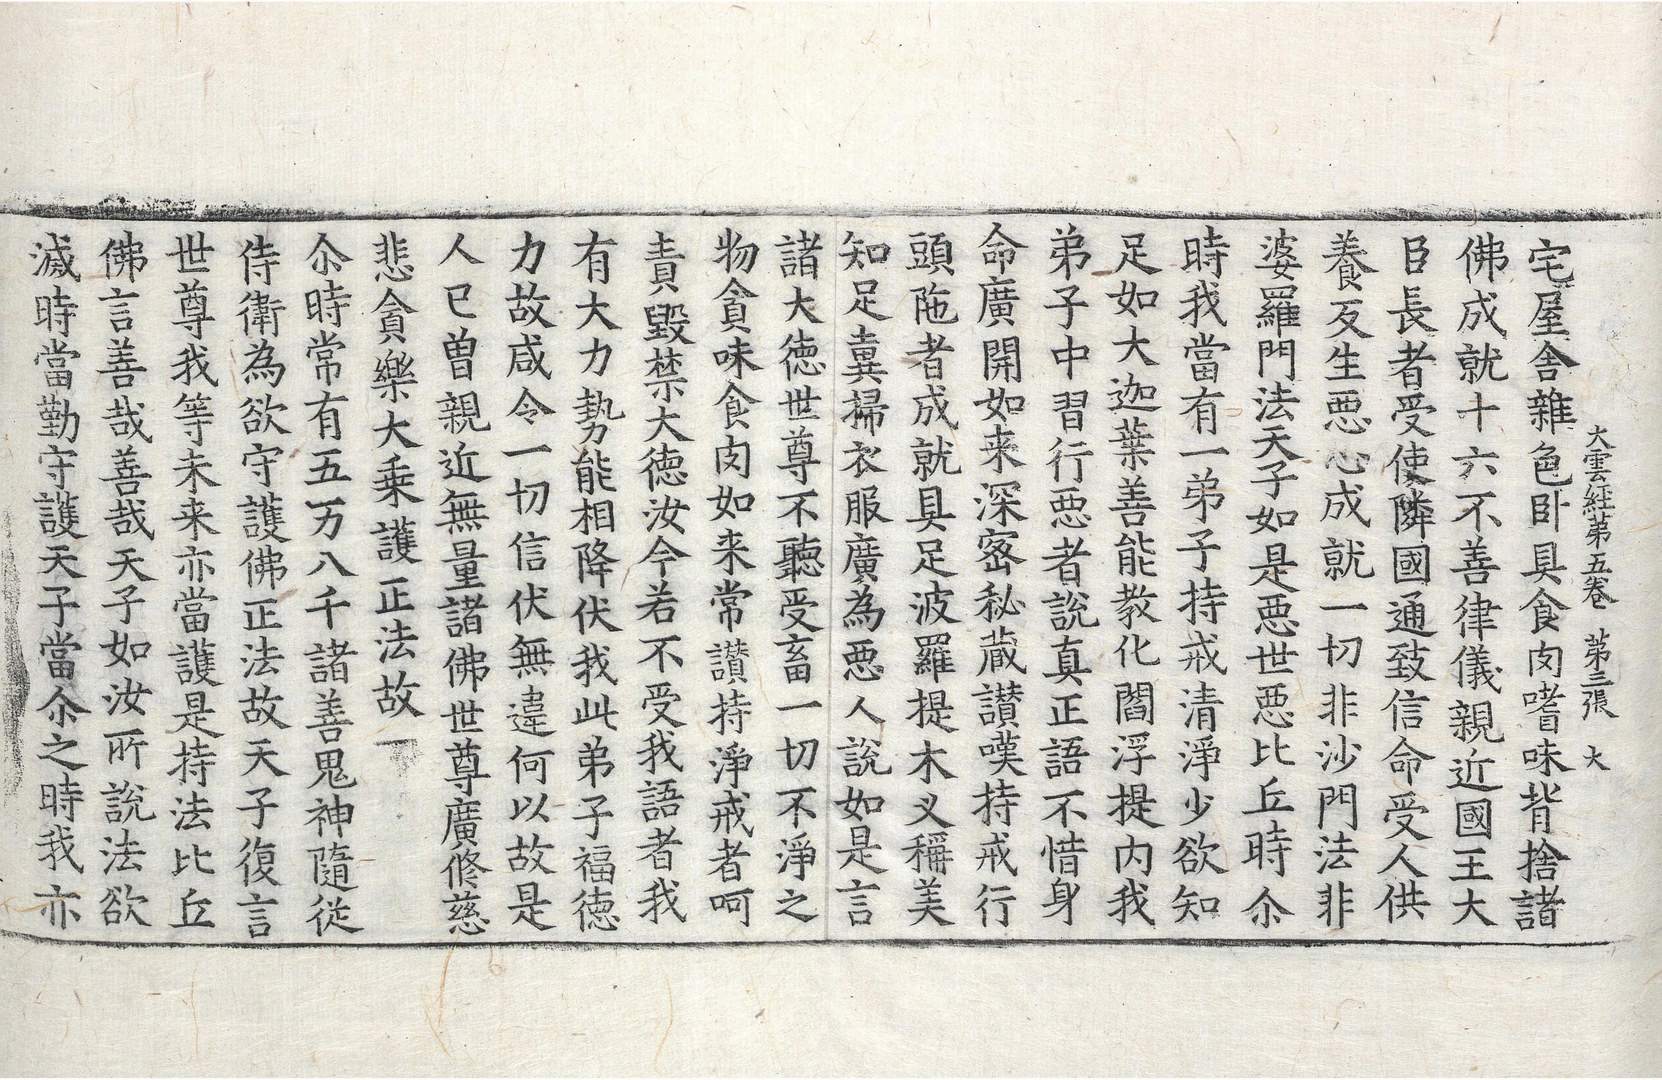 大雲經第五卷 第三張 大
宅屋舍雜色卧具食肉嗜味背捨諸
佛成就十六不善律儀親近國王大
臣長者受使隣國通致信命受人供
養及生惡心成就一切非沙門法非
婆羅門法天子如是惡世惡比丘時尒
時我當有一弟子持戒清淨少欲知
足如大迦葉善能教化閻浮提内我
弟子中習行惡者說真正語不惜身
命廣開如来深密秘蔵讃嘆持戒行
頭陁者成就具足波羅提木义稱美
知足糞掃衣服廣為惡人說如是言
諸大德世尊不聽受畜一切不淨之
物貪味食肉如来常讃持淨戒者呵
責毀禁大德汝今若不受我語者我
有大力勢能相降伏我此弟子福德
力故咸令一切信伏無違何以故是
人已曽親近無量諸佛世尊廣修慈
悲貪樂大乗護正法故
尒時常有五万八千諸善鬼神隨從
侍衛為欲守護佛正法故天子復言
世尊我等未来亦當護是持法比丘
佛言善哉善哉天子如汝所說法欲
滅時當勤守護天子當尒之時我亦